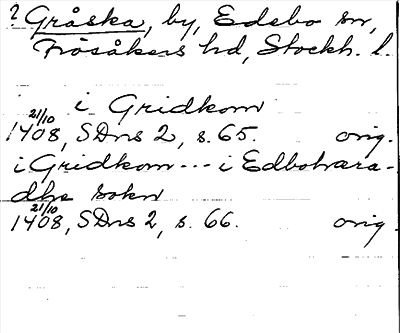 ? Gråska, by, Edebo sn,
Frösåkers hd, Stockh. l.
i Gridkom
21/10
1408, SDns 2, s. 65. orig.
i Gridkom --- i Edbohæra-
dhe sokn
21/10
1408, SDns 2, s. 66. orig.